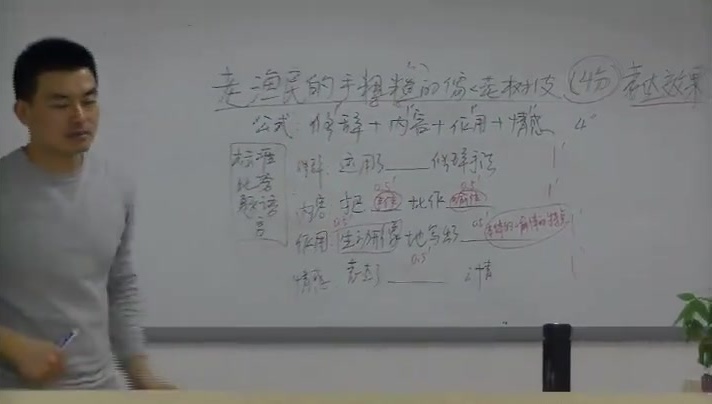 老渔民的手粗糙的像老树皮 (4分) 表达效果
公式: 修辞+内容+作用+情感 4'
标准化答题语言
修辞: 运用了____修辞手法 1'
内容: 把 比作 1'
作用: 生动形象地写出____ 1'
情感: 表达了____之情 1'